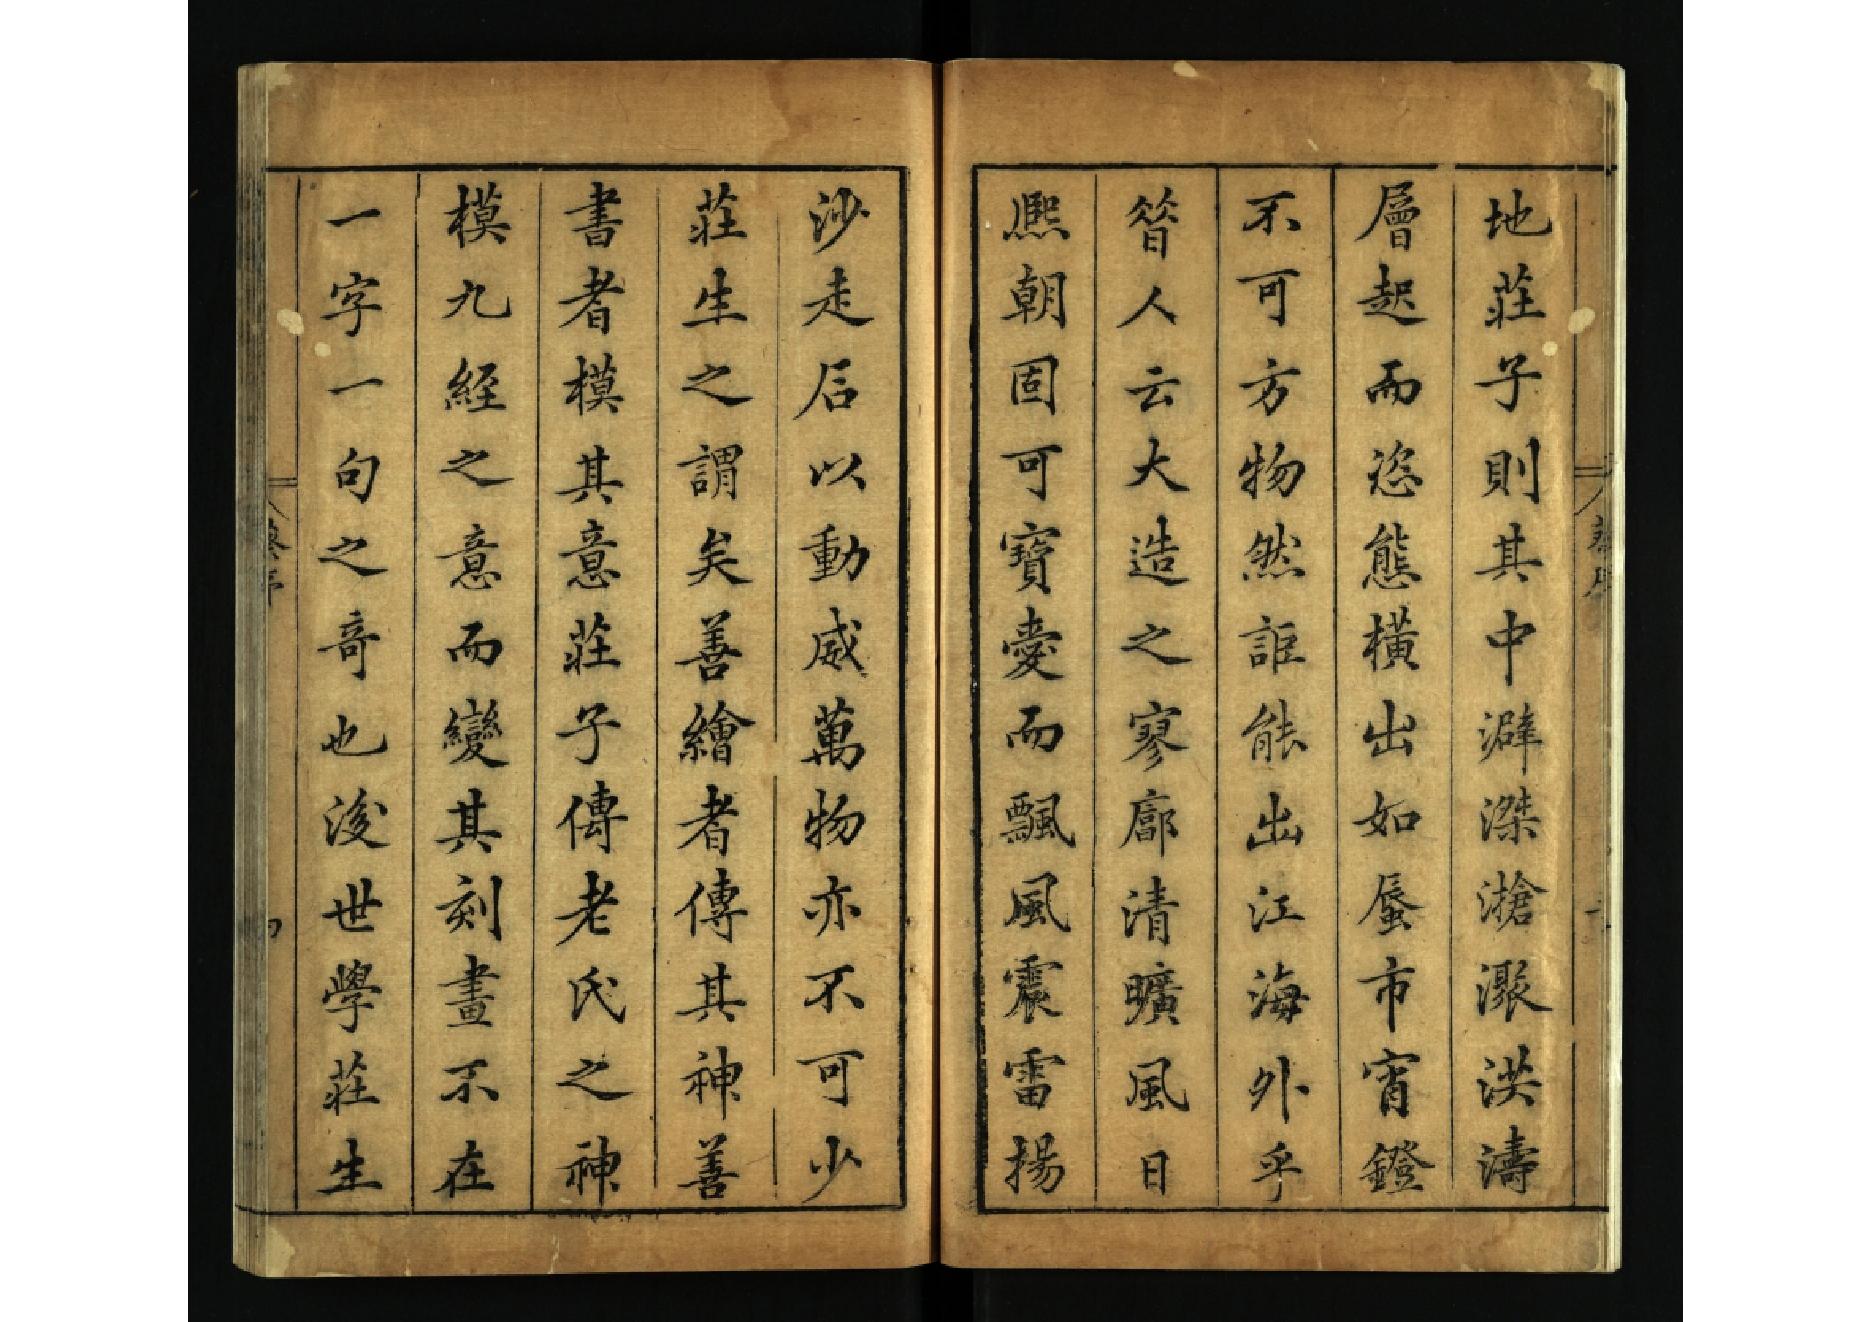 地莊子則其中澼滐滄漷洪濤
層起而恣態橫出如蜃市宵鐙
不可方物然詎能出江海外乎
昝人云大造之寥廓清曠風日
熈朝固可寶愛而飄風震雷揚
沙走石以動威萬物亦不可少
莊生之謂矣善繪者傳其神善
書者模其意莊子傳老氏之神
模九經之意而變其刻畫不在
一字一句之奇也後世學莊生